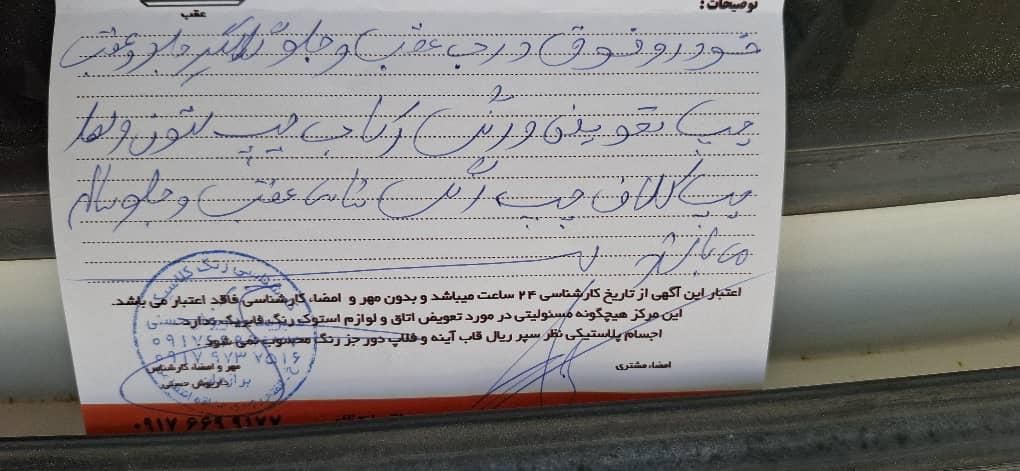 توضیحات :
عقب
خودرو فوق درب عقب و جلو گلگیر جلو و عقب
چپ تعویض و رنگ رکاب چپ ستون ولها
چپ کلاف چپ رنگ شاسی عقب و جلو سالم
می باشد
اعتبار این آگهی از تاریخ کارشناسی ۲۴ ساعت میباشد و بدون مهر و امضاء کارشناسی فاقد اعتبار می باشد.
این مرکز هیچگونه مسئولیتی در مورد تعویض اتاق و لوازم استوک رنگ فابریک ندارد.
اجسام پلاستیکی نظر سپر ریال قاب آینه و فلاپ دور جز رنگ محسوب نمی شود.
امضاء مشتری
مهر و امضاء کارشناس
داریوش حسنی
۰۹۱۷ ۶۶۹ ۹۱۷۷